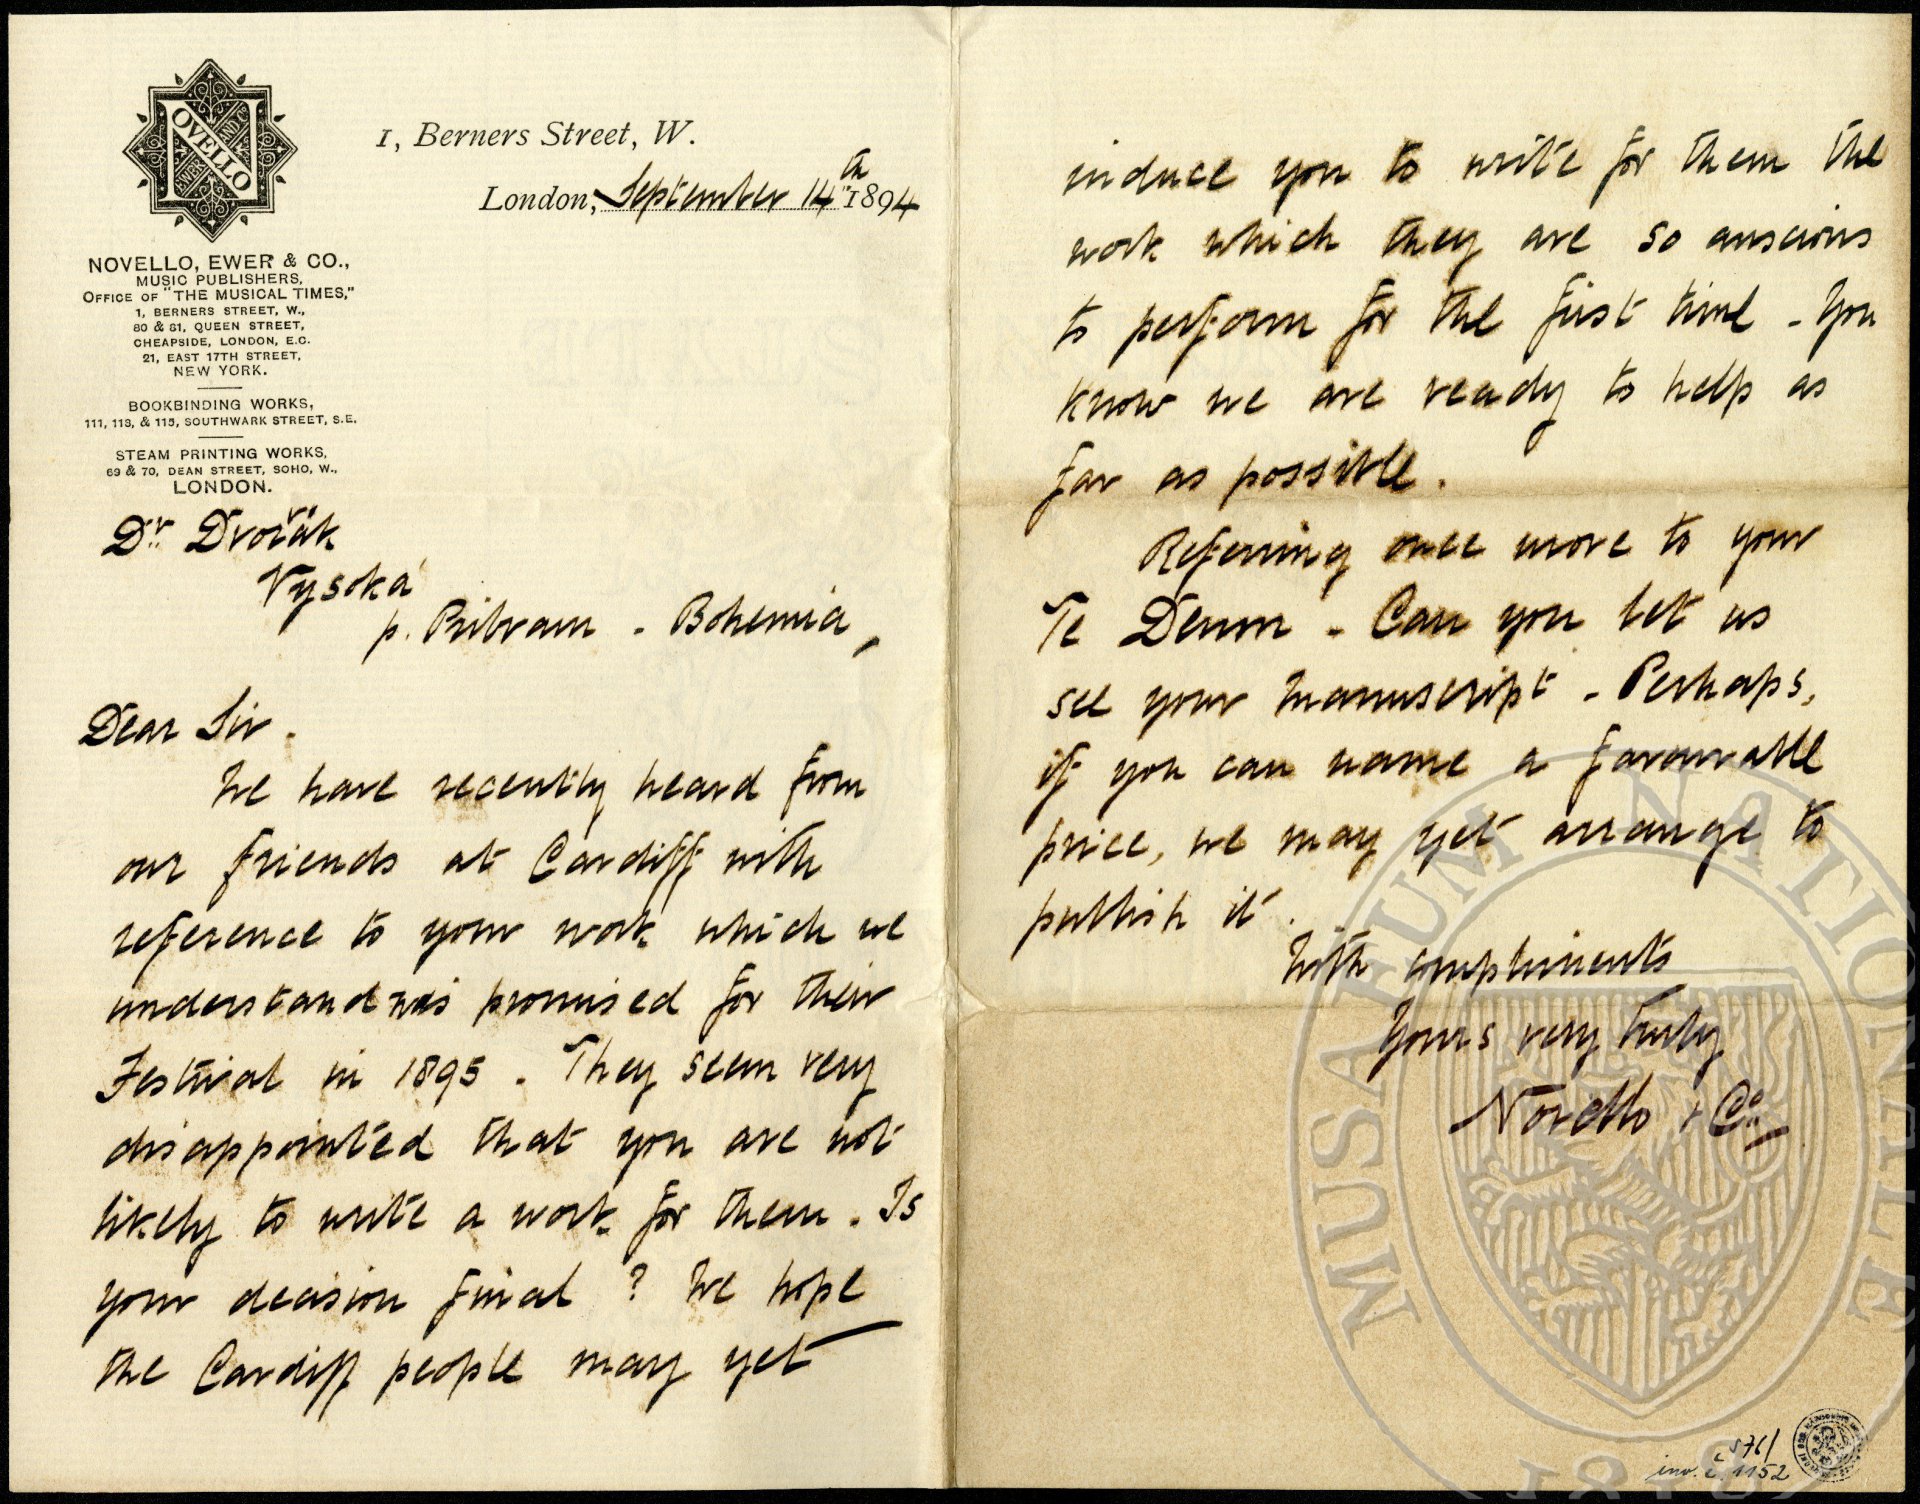 NOVELLO
AND CO
EWER
1, Berners Street, W.
London, September 14th 1894
NOVELLO, EWER & CO.,
MUSIC PUBLISHERS,
OFFICE OF "THE MUSICAL TIMES,"
1, BERNERS STREET, W.,
80 & 81, QUEEN STREET,
CHEAPSIDE, LONDON, E.C.
21, EAST 17TH STREET,
NEW YORK.
BOOKBINDING WORKS,
111, 113, & 115, SOUTHWARK STREET, S.E.
STEAM PRINTING WORKS,
69 & 70, DEAN STREET, SOHO, W.,
LONDON.
Dr. Dvořák
Vysoká
p. Pribram - Bohemia,
Dear Sir.
We have recently heard from
our friends at Cardiff with
reference to your work which we
understand was promised for their
Festival in 1895. They seem very
disappointed that you are not
likely to write a work for them. Is
your decision final? We hope
the Cardiff people may yet
induce you to write for them the
work which they are so anscious
to perform for the first time - You
know we are ready to help as
far as possible.
Referring once more to your
Te Deum - Can you let us
see your manuscript - Perhaps,
if you can name a favourable
price, we may yet arrange to
publish it.
With compliments
Yours very truly
Novello & Co.
MUSAEUM NATIONALE
1818
č 576/
inv. č. 1152